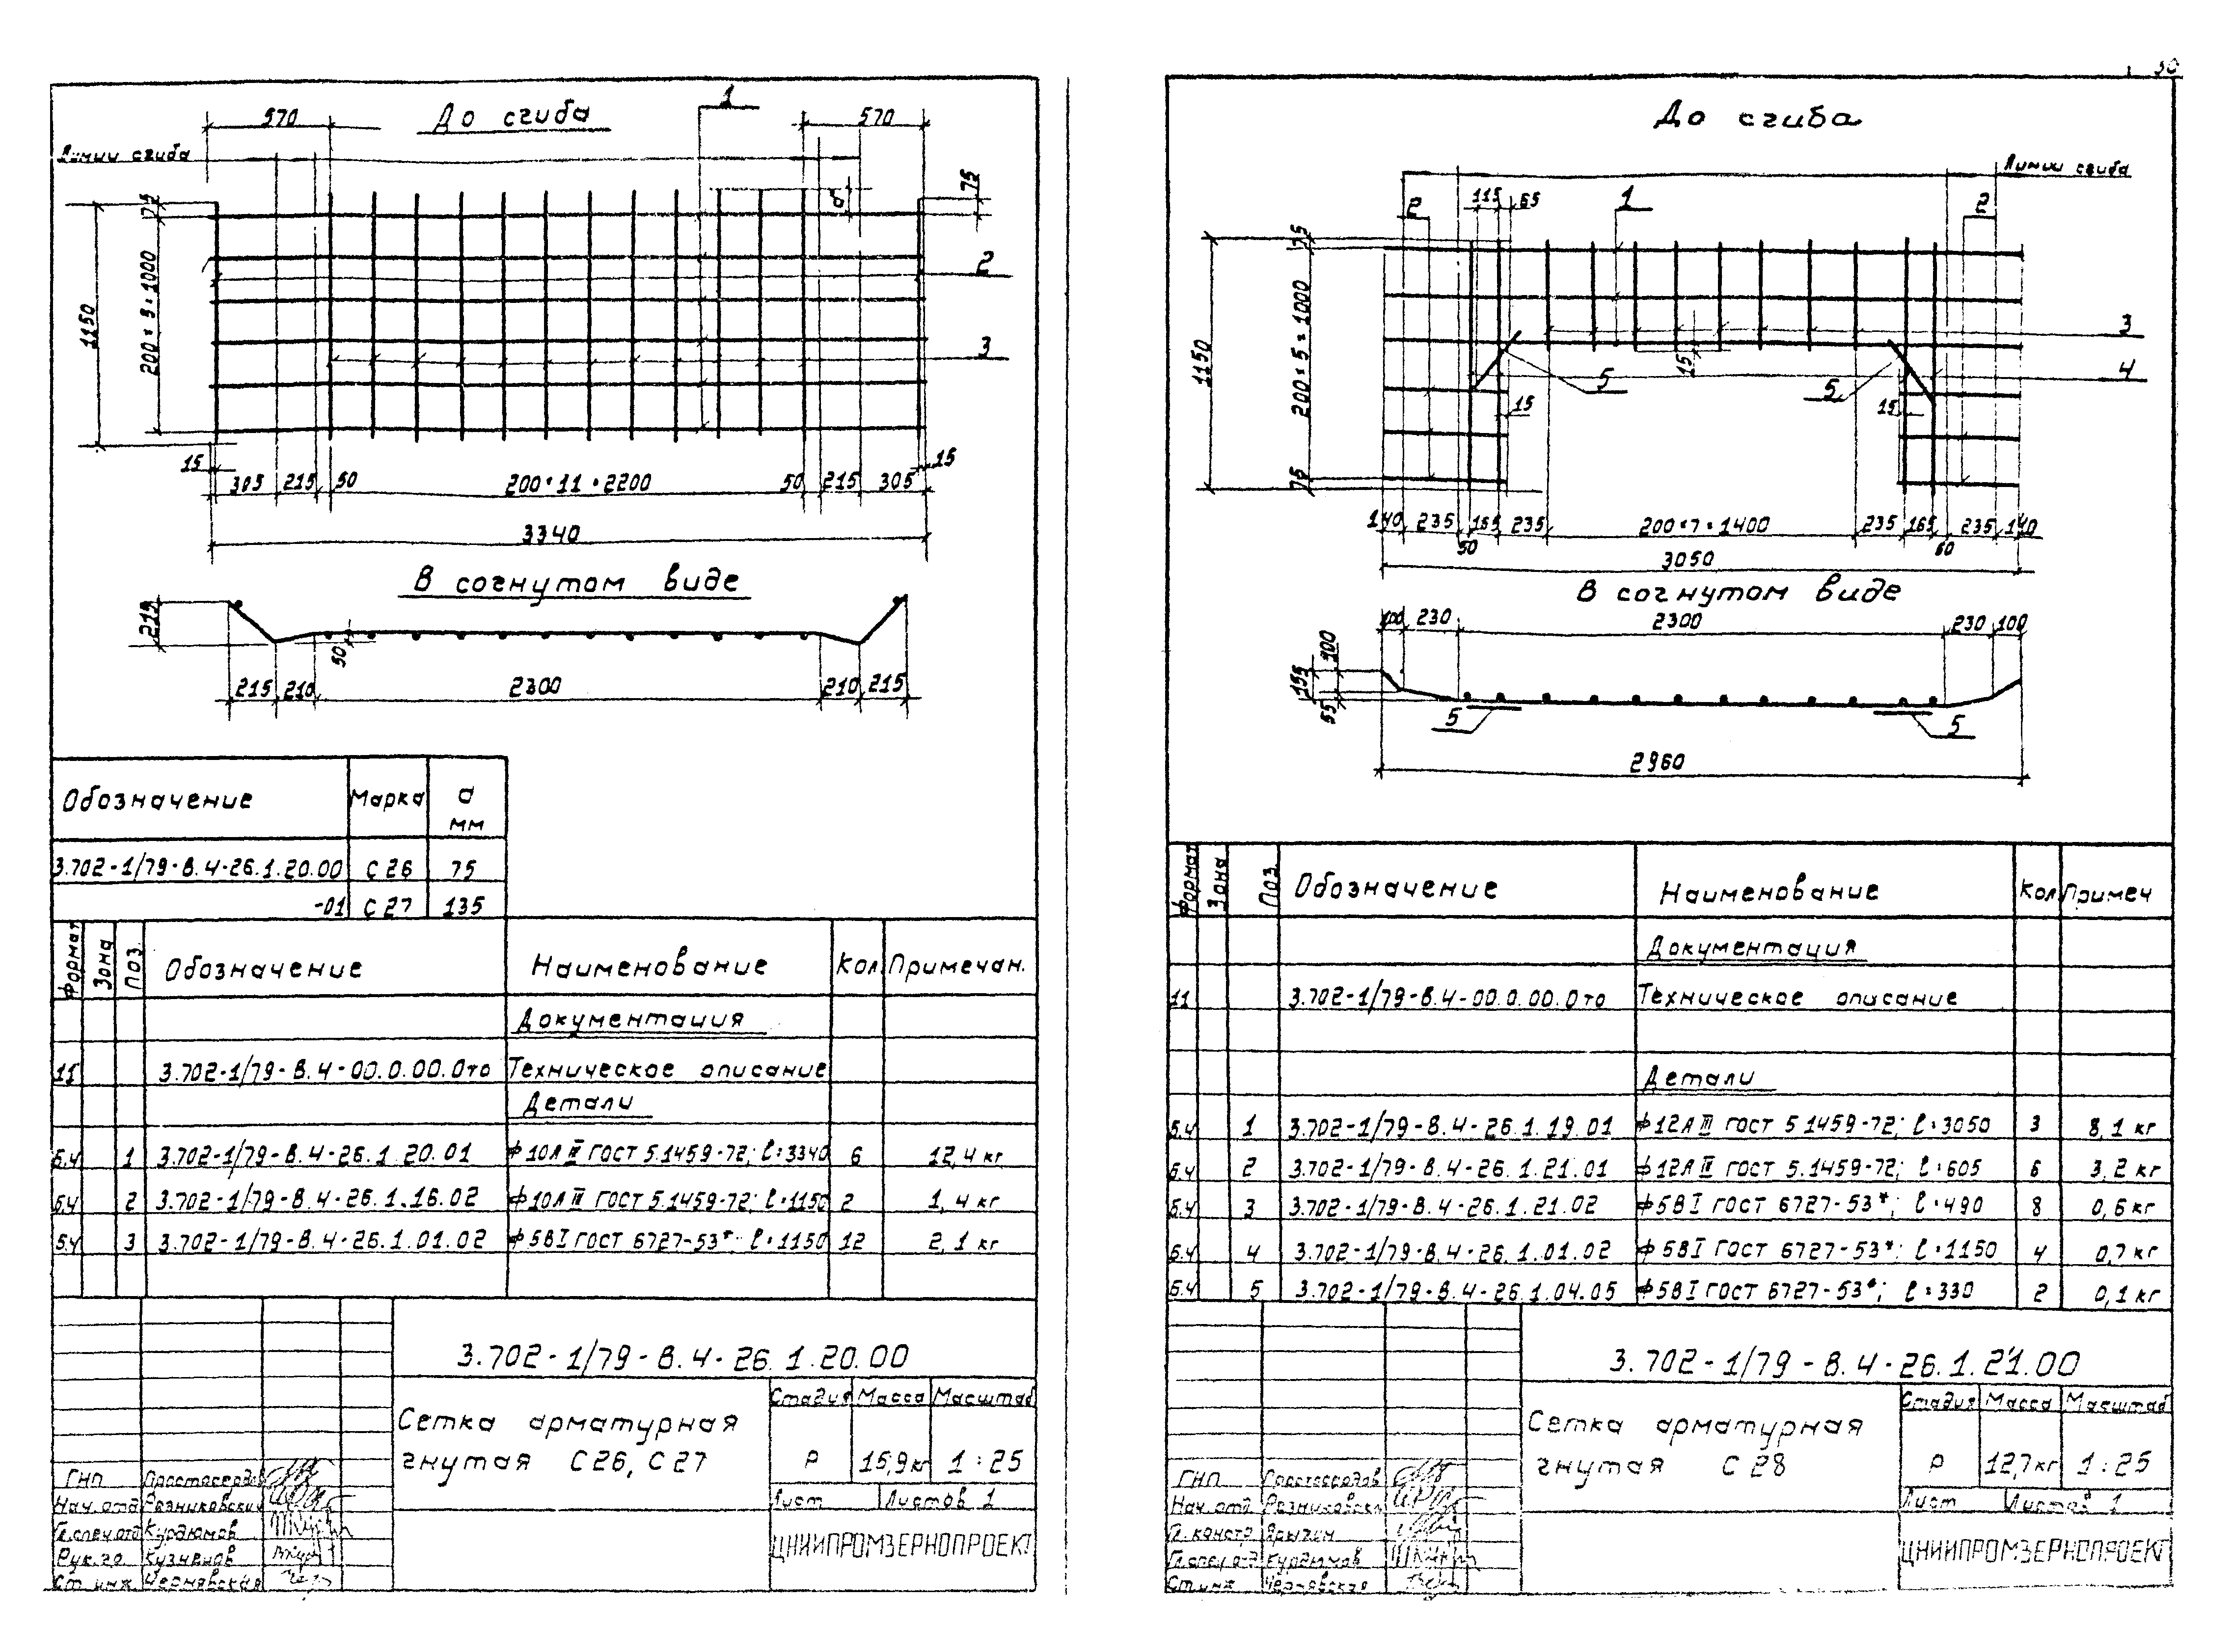 30
До сгиба
570
1
570
Линии сгиба
75
1150
200×5=1000
75
а
2
3
15
305
215
50
200×11=2200
50
215
305
15
3340
В согнутом виде
215
50
215
210
2300
210
215
Обозначение Марка а мм
3.702-1/79-В.4-26.1.20.00 С26 75
-01 С27 135
Формат Зона Поз. Обозначение Наименование Кол. Примечан.
Документация
11 3.702-1/79-В.4-00.0.00.0то Техническое описание
Детали
Б.4 1 3.702-1/79-В.4-26.1.20.01 ф10АIII ГОСТ 5.1459-72; ℓ=3340 6 12,4 кг
Б.4 2 3.702-1/79-В.4-26.1.16.02 ф10АIII ГОСТ 5.1459-72; ℓ=1150 2 1,4 кг
Б.4 3 3.702-1/79-В.4-26.1.01.02 ф5ВI ГОСТ 6727-53*; ℓ=1150 12 2,1 кг
3.702-1/79-В.4-26.1.20.00
Сетка арматурная
гнутая С26, С27
Стадия Масса Масштаб
Р 15,9кг 1:25
Лист Листов 1
ЦНИИПРОМЗЕРНОПРОЕКТ
ГИП Простосердов
Нач.отд Резниковский
Гл.спец.отд Курдюмов
Рук.гр. Кузненов
Ст.инж. Чернявская
До сгиба
Линии сгиба
2
115
65
1
2
1150
75
200×5=1000
75
3
15
5
5
4
15
15
140
235
50
165
235
200×7=1400
235
165
60
235
140
3050
В согнутом виде
100
230
2300
230
100
100
155
55
5
5
2960
Формат Зона Поз. Обозначение Наименование Кол Примеч
Документация
11 3.702-1/79-В.4-00.0.00.0то Техническое описание
Детали
Б.4 1 3.702-1/79-В.4-26.1.19.01 ф12АIII ГОСТ 5.1459-72; ℓ=3050 3 8,1 кг
Б.4 2 3.702-1/79-В.4-26.1.21.01 ф12АIII ГОСТ 5.1459-72; ℓ=605 6 3,2 кг
Б.4 3 3.702-1/79-В.4-26.1.21.02 ф5ВI ГОСТ 6727-53*; ℓ=490 8 0,6 кг
Б.4 4 3.702-1/79-В.4-26.1.01.02 ф5ВI ГОСТ 6727-53*; ℓ=1150 4 0,7 кг
Б.4 5 3.702-1/79-В.4-26.1.04.05 ф5ВI ГОСТ 6727-53*; ℓ=330 2 0,1 кг
3.702-1/79-В.4-26.1.21.00
Сетка арматурная
гнутая С28
Стадия Масса Масштаб
Р 12,7кг 1:25
Лист Листов 1
ЦНИИПРОМЗЕРНОПРОЕКТ
ГИП Простосердов
Нач.отд. Резниковск
Гл.констр. Ярыгин
Гл.спец.отд Курдюмов
Ст.инж Чернявская